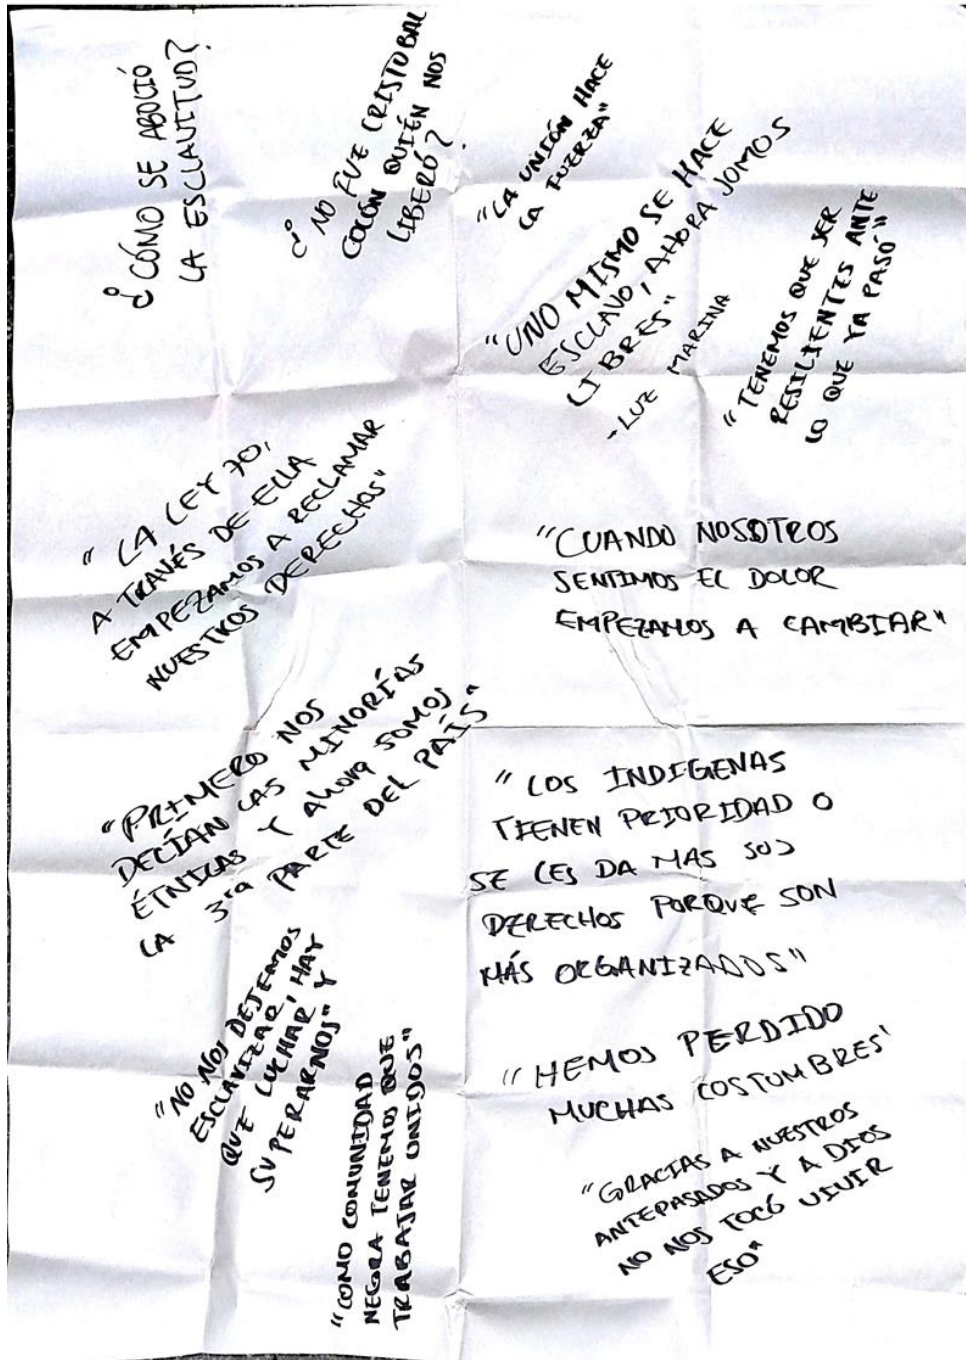 ¿CÓMO SE ABOLIÓ
LA ESCLAVITUD?
¿NO FUE CRISTOBAL
COLÓN QUIÉN NOS
LIBERÓ?
"LA UNIÓN HACE
LA FUERZA"
"UNO MISMO SE HACE
ESCLAVO, AHORA SOMOS
LIBRES"
-LUZ MARINA
"TENEMOS QUE SER
RESILIENTES ANTE
LO QUE YA PASÓ"
"LA LEY 70,
A TRAVÉS DE ELLA
EMPEZAMOS A RECLAMAR
NUESTROS DERECHOS"
"CUANDO NOSOTROS
SENTIMOS EL DOLOR
EMPEZAMOS A CAMBIAR"
"PRIMERO NOS
DECÍAN LAS MINORÍAS
ÉTNICAS Y AHORA SOMOS
LA 3ra PARTE DEL PAÍS"
"LOS INDIGENAS
TIENEN PRIORIDAD O
SE LES DA MAS SUS
DERECHOS PORQUE SON
MÁS ORGANIZADOS"
"NO NOS DEJEMOS
ESCLAVIZAR, HAY
QUE LUCHAR Y
SUPERARNOS"
"COMO COMUNIDAD
NEGRA TENEMOS QUE
TRABAJAR UNIDOS"
"HEMOS PERDIDO
MUCHAS COSTUMBRES'
"GRACIAS A NUESTROS
ANTEPASADOS Y A DIOS
NO NOS TOCÓ VIVIR
ESO"